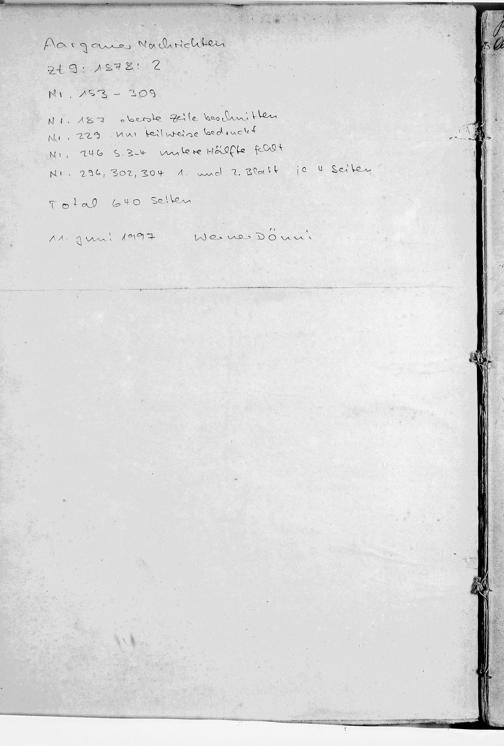 Aargauer Nachrichten
Ztg: 1878: 2
Nr. 153 - 309
Nr. 187 oberste Zeile beschnitten
Nr. 229 nur teilweise bedruckt
Nr. 246 S. 3-4 untere Hälfte fehlt
Nr. 296, 302, 304 1. und 2. Blatt je 4 Seiten
Total 640 Seiten
11. Juni 1997 Werner Dönni